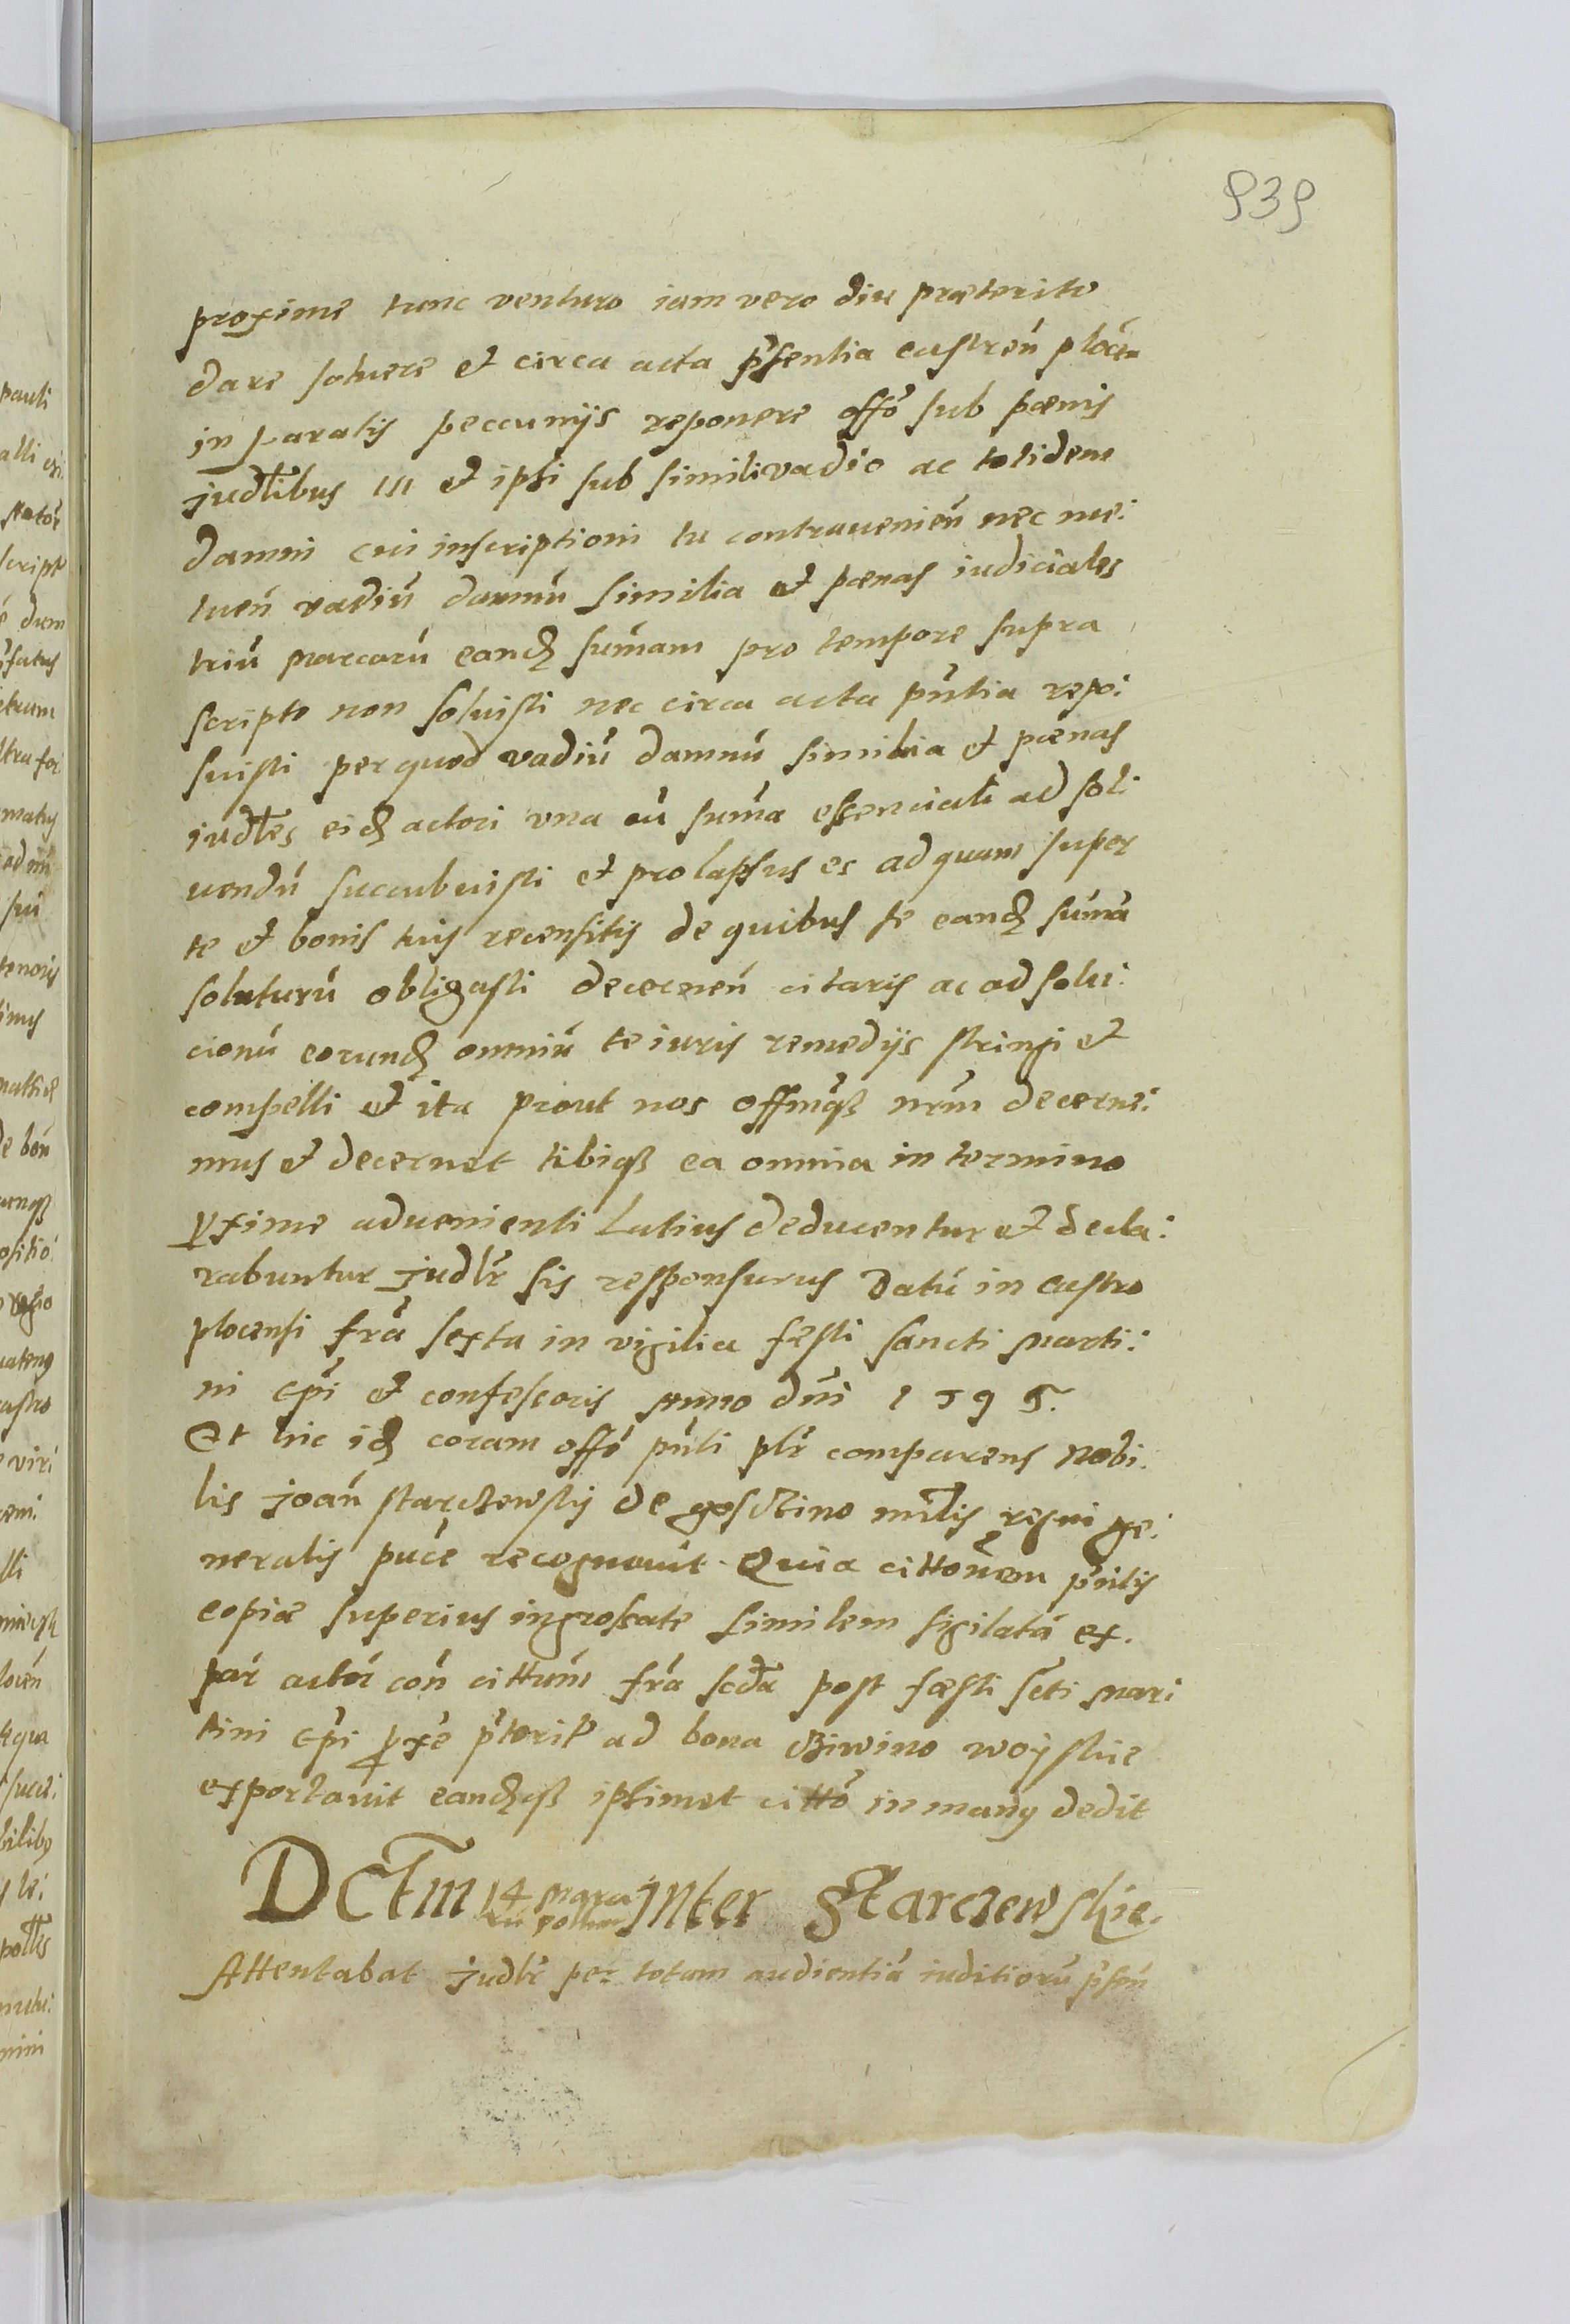 939
proxime tunc venturo iam vero diu præterito
dare soluere et circa acta pñsentia castreñ ploceñ
in paratis peccunijs reponere offõ sub pœnis
judłibus III et ipsi sub simili vadio ac totidem
damni cui inscriptioni tu contraueniẽn nec me:
tueñ vadiũ damnũ similia et pœnas iudiciales
triũ marcarũ eandẽ sum̃am pro tempore supra
scripto non soluisti nec circa acta pñtia repo:
suisti per quod vadiũ damnũ similia et pœnas
judłes eidẽ actori vna cũ sum̃a essenciali ad sol:
uendũ succubuisti et prolapsus es ad quam super
te et bonis tuis recensitis de quibus te eandẽ sum̃ã
soluturũ obligasti decerneñ citaris ac ad solu:
cionũ eorundẽ omniũ te iuris remedijs stringi et
compelli et ita prout nos offm̃qȝ nrm̃ decerne:
mus et decernet tibiqȝ ea omnia in termino
ꝓxime aduenienti Latius deducentur et decla:
rabuntur judłr sis responsurus Datũ in Castro
plocensi frã sexta in vigilia fæsti sancti marti:
ni Epĩ et confessoris Anno dñi 1595.
Et hic idẽ coram offõ pñti plr comparens Nobi:
lis joañ starczewskj de gosczino młis regni ge:
neralis pũce recognouit Quia cittonem pñtis
copiæ superius ingrossate similem sigilatã ex
par actor coñ cittum frã scďa post fæsti scti mar:
tini Epĩ ꝓxẽ p̃terit ad bona Giwino woyskie
exportauit eandẽqȝ ipsimet cittõ in manꝰ dedit
Dctm 14 marca
rũ pollm Inter Starczewskie.
Attentabat judłr per totam audientiã iuditiorũ p̃señ